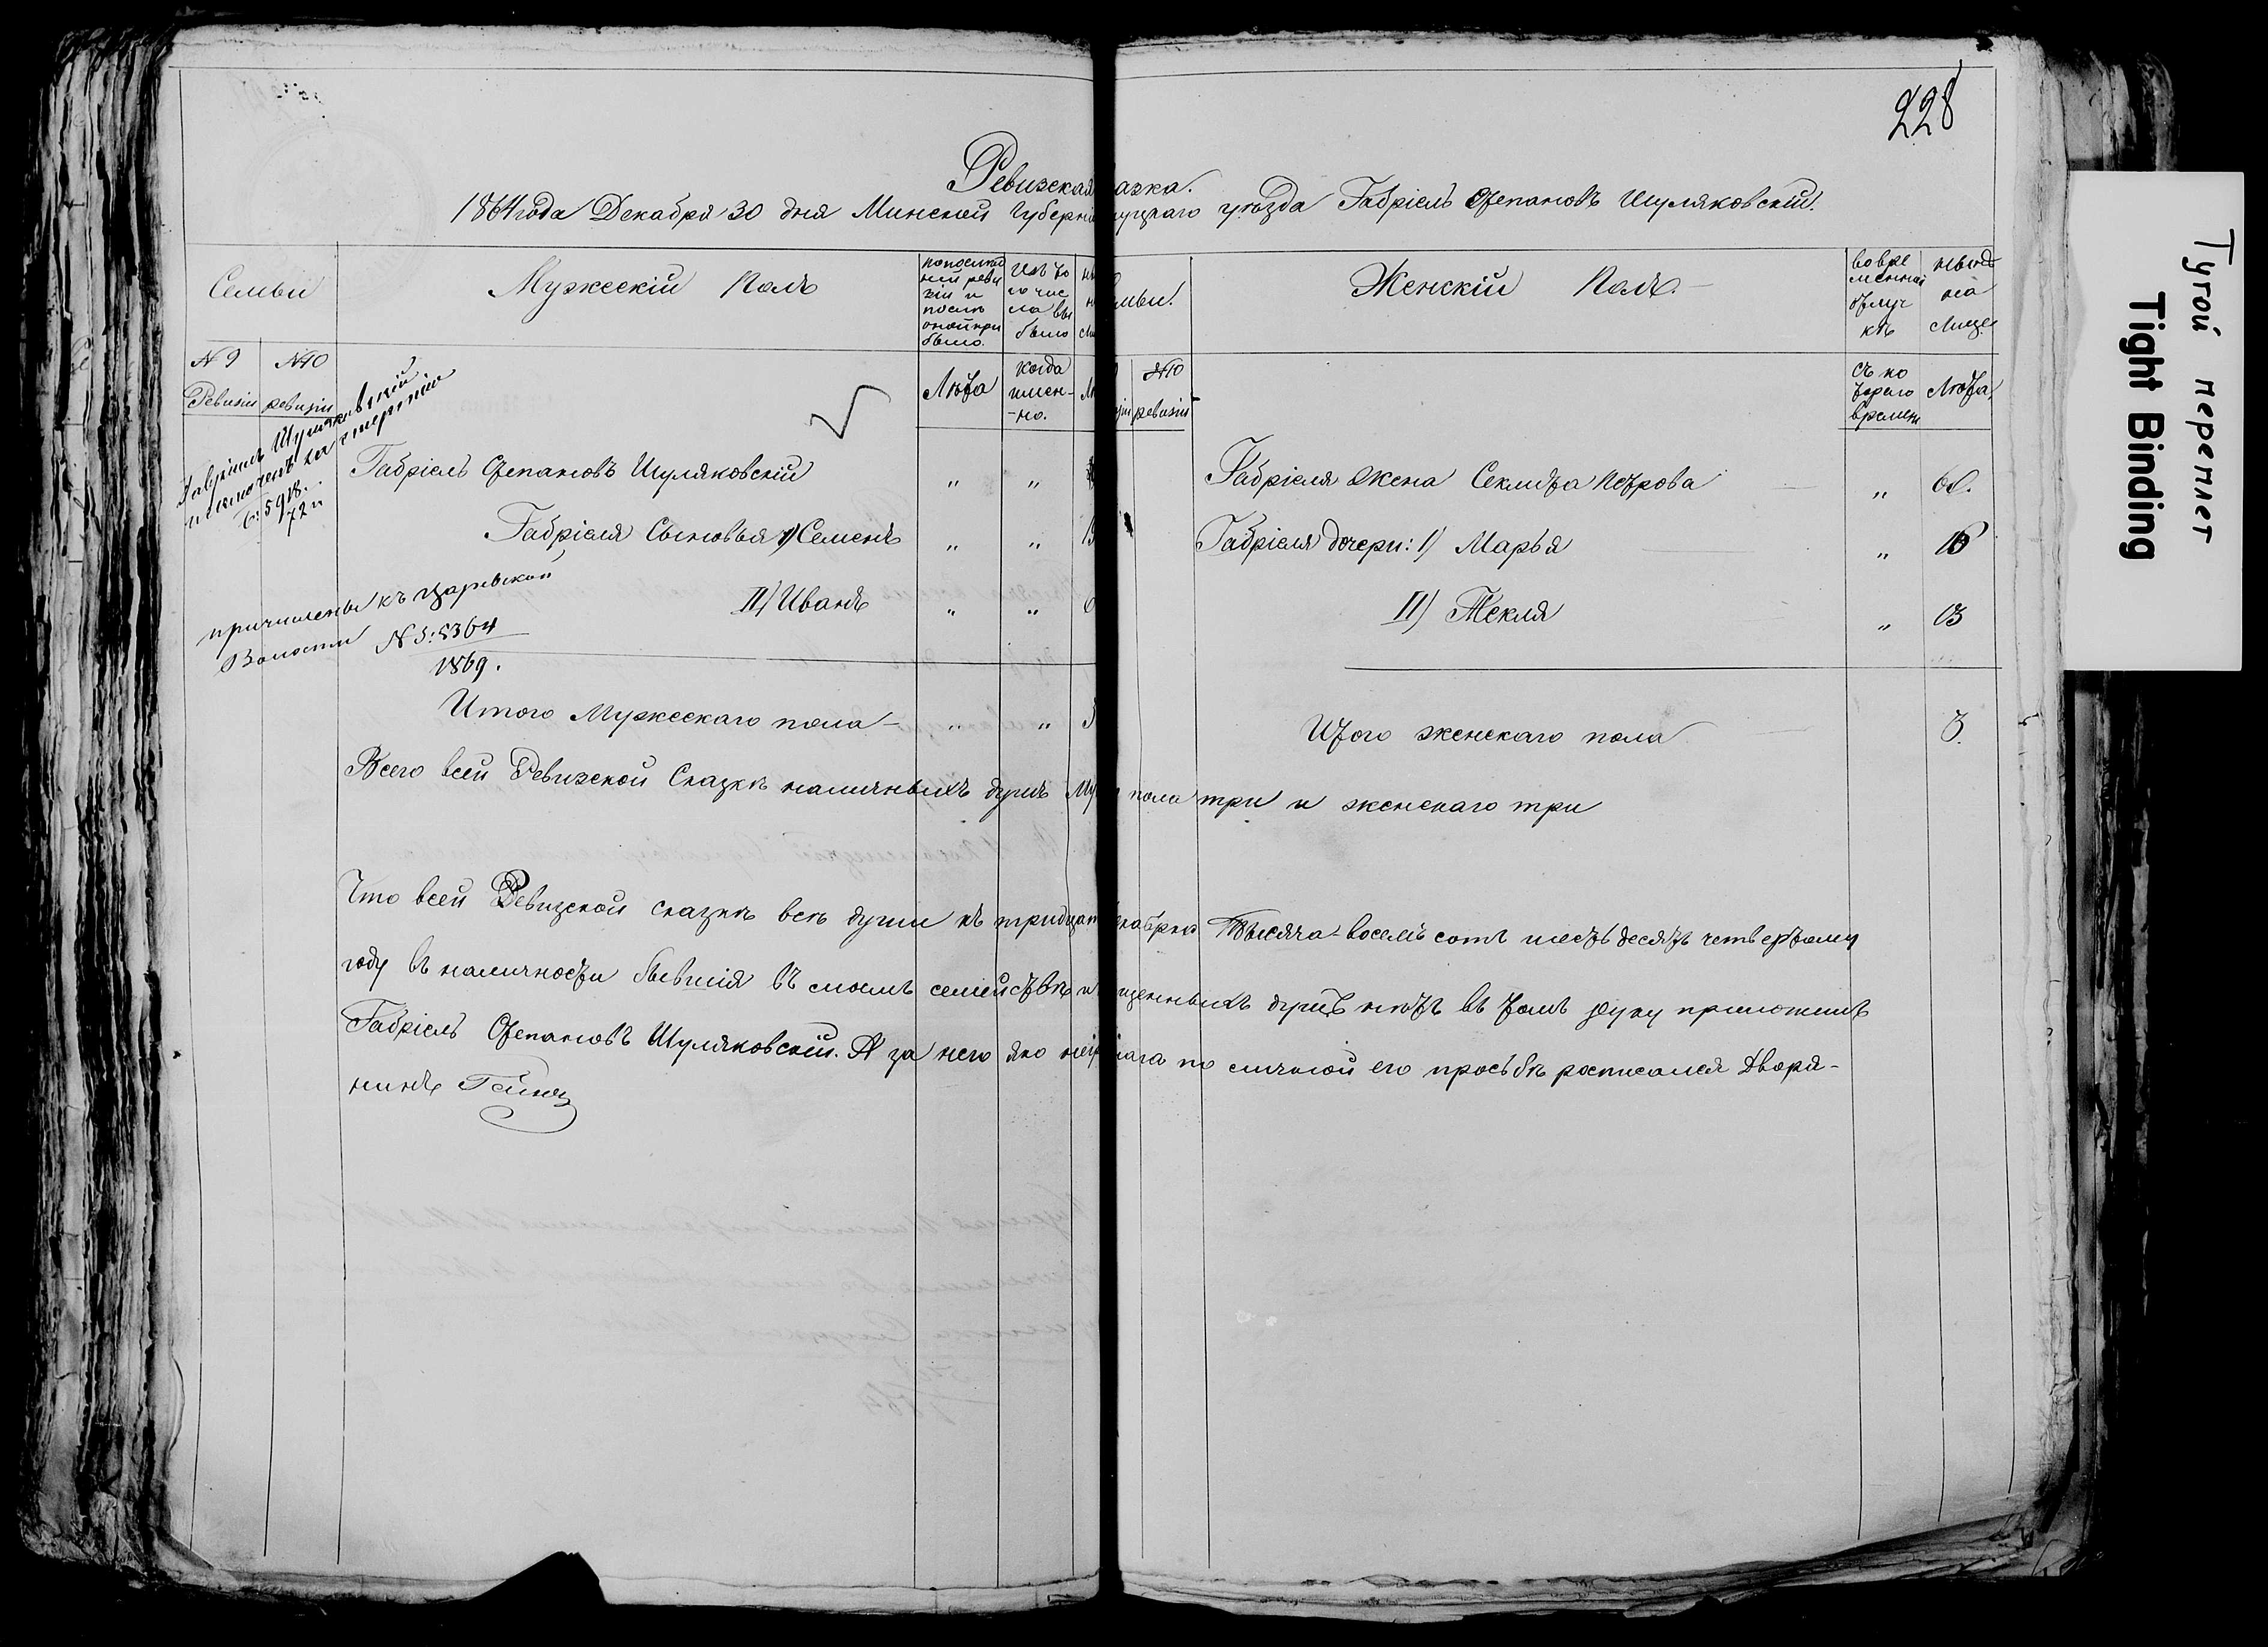 228
Ревизская азка.
1864 года Декабря 30 дня Минской Губерни уцкаго уѣзда Габріель Степановъ Шуляковскій.
Семьи
Мужескій Полъ
по послѣд
ней реви
зіи и
послѣ
оной при
было.
Изъ то
го чис
ла вы
было
мьи.
Женскій Полъ.
во вре
менной
отлуч
кѣ
нынѣ
на
Лицѣ
N 9
Ревизіи
N 10
ревизіи
Лѣта
когда
имен-
-но.
N 10
ревизіи
съ ко
тораго
времени
Лѣта,
Гавріилъ Шуляковскій
исключенъ
72
Габріель Степановъ Шуляковскій " "
Габріеля Жена Секлита Петрова "
Габріеля Сыновья I) Семенъ " "
Габріеля дочери: 1) Марья "
II) Иванъ " "
II) Текля " 13
причислены къ Царевской
Волости N 5:8364
1869.
Итого Мужескаго пола - " "
Итого женскаго пола 3.
Всего всей Ревизской Сказкѣ наличныхъ душъ Му пола три и женскаго три
Что всей Ревизской сказкѣ всѣ души къ тридцат екабря Тысяча-восемь сотъ шесть десятъ четвертому
году въ наличности бывшія въ моемъ семействѣ и щенныхъ душъ нѣтъ въ томъ руку приложилъ
Габріель Степановъ Шуляковскій. А за него яко негр наго по личной его просьбѣ росписался Дворя-
нинъ
Тугой переплет
Tight Binding